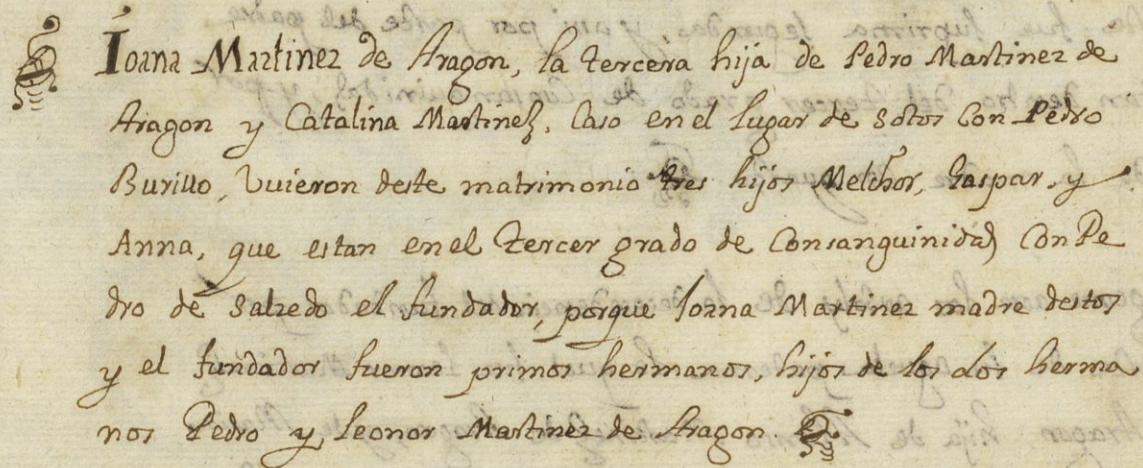 Ioana Martinez de Aragon, la tercera hija de Pedro Martinez de
Aragon y Catalina Martinez, Caso en el lugar de Sotos Con Pedro
Burillo, Vuieron deste matrimonio tres hijos Melchor, Gaspar, y
Anna, que estan en el tercer grado de Consanguinidad Con Pe
dro de Salzedo el fundador, porque Ioana Martinez madre destos
y el fundador fueron primos hermanos, hijos de los dos herma
nos Pedro y Leonor Martinez de Aragon